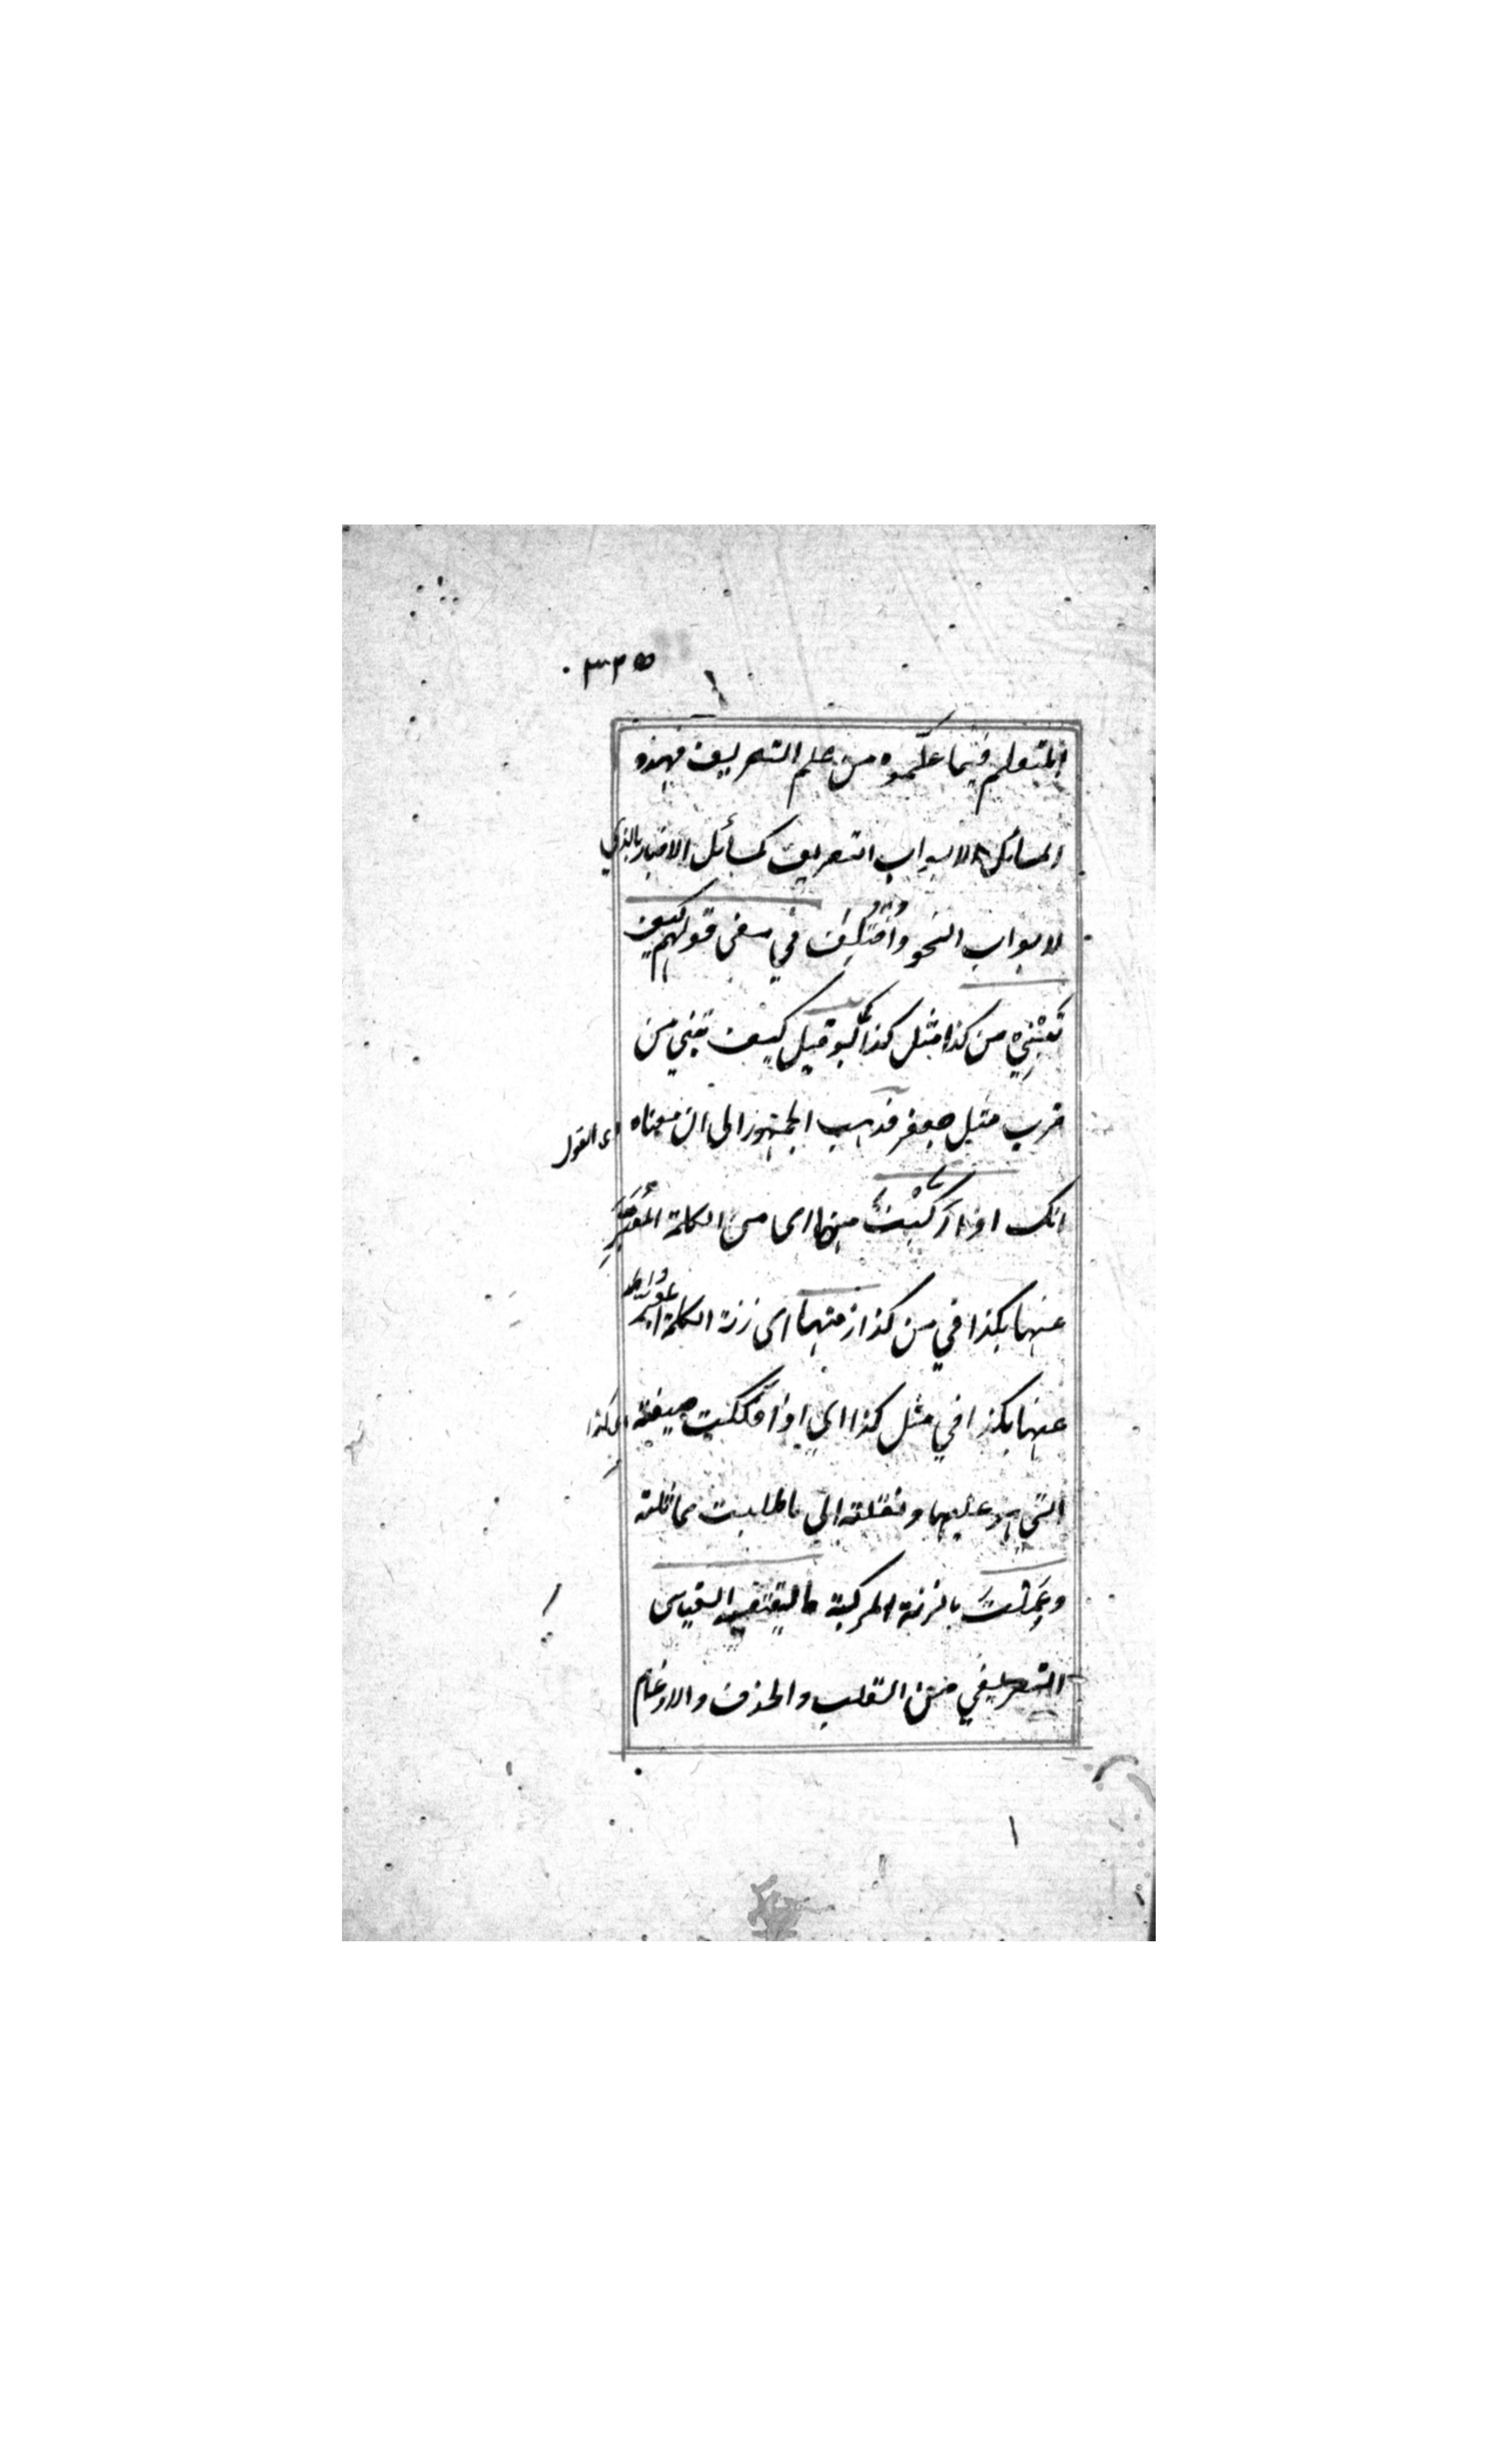 ٣٣٥
المتعلم فيما علموه من علم التصريف فهذه
المسائل لابواب التصريف كمسائل الاخبار بالذي
لابواب النحو واختلف في معنى قولهم كيف
تبني من كذا مثل كذا كما لو قيل كيف تبني من
ضرب مثل جعفر فذهب الجمهور الى ان معناه
اى القول
انك اذا ركبت منها اى من الكلمة المعبر
عنها بكذا في من كذا زنتها اى زنة الكلمة المعبر
عنها بكذا في مثل كذا اي اذا فككت صيغته
اى كذا
التي هو عليها ونقلته الي ما طلبت مماثلته
وعملت بالزنة المركبة ما يقتضيه القياس
التصريفي من القلب والحذف والادغام